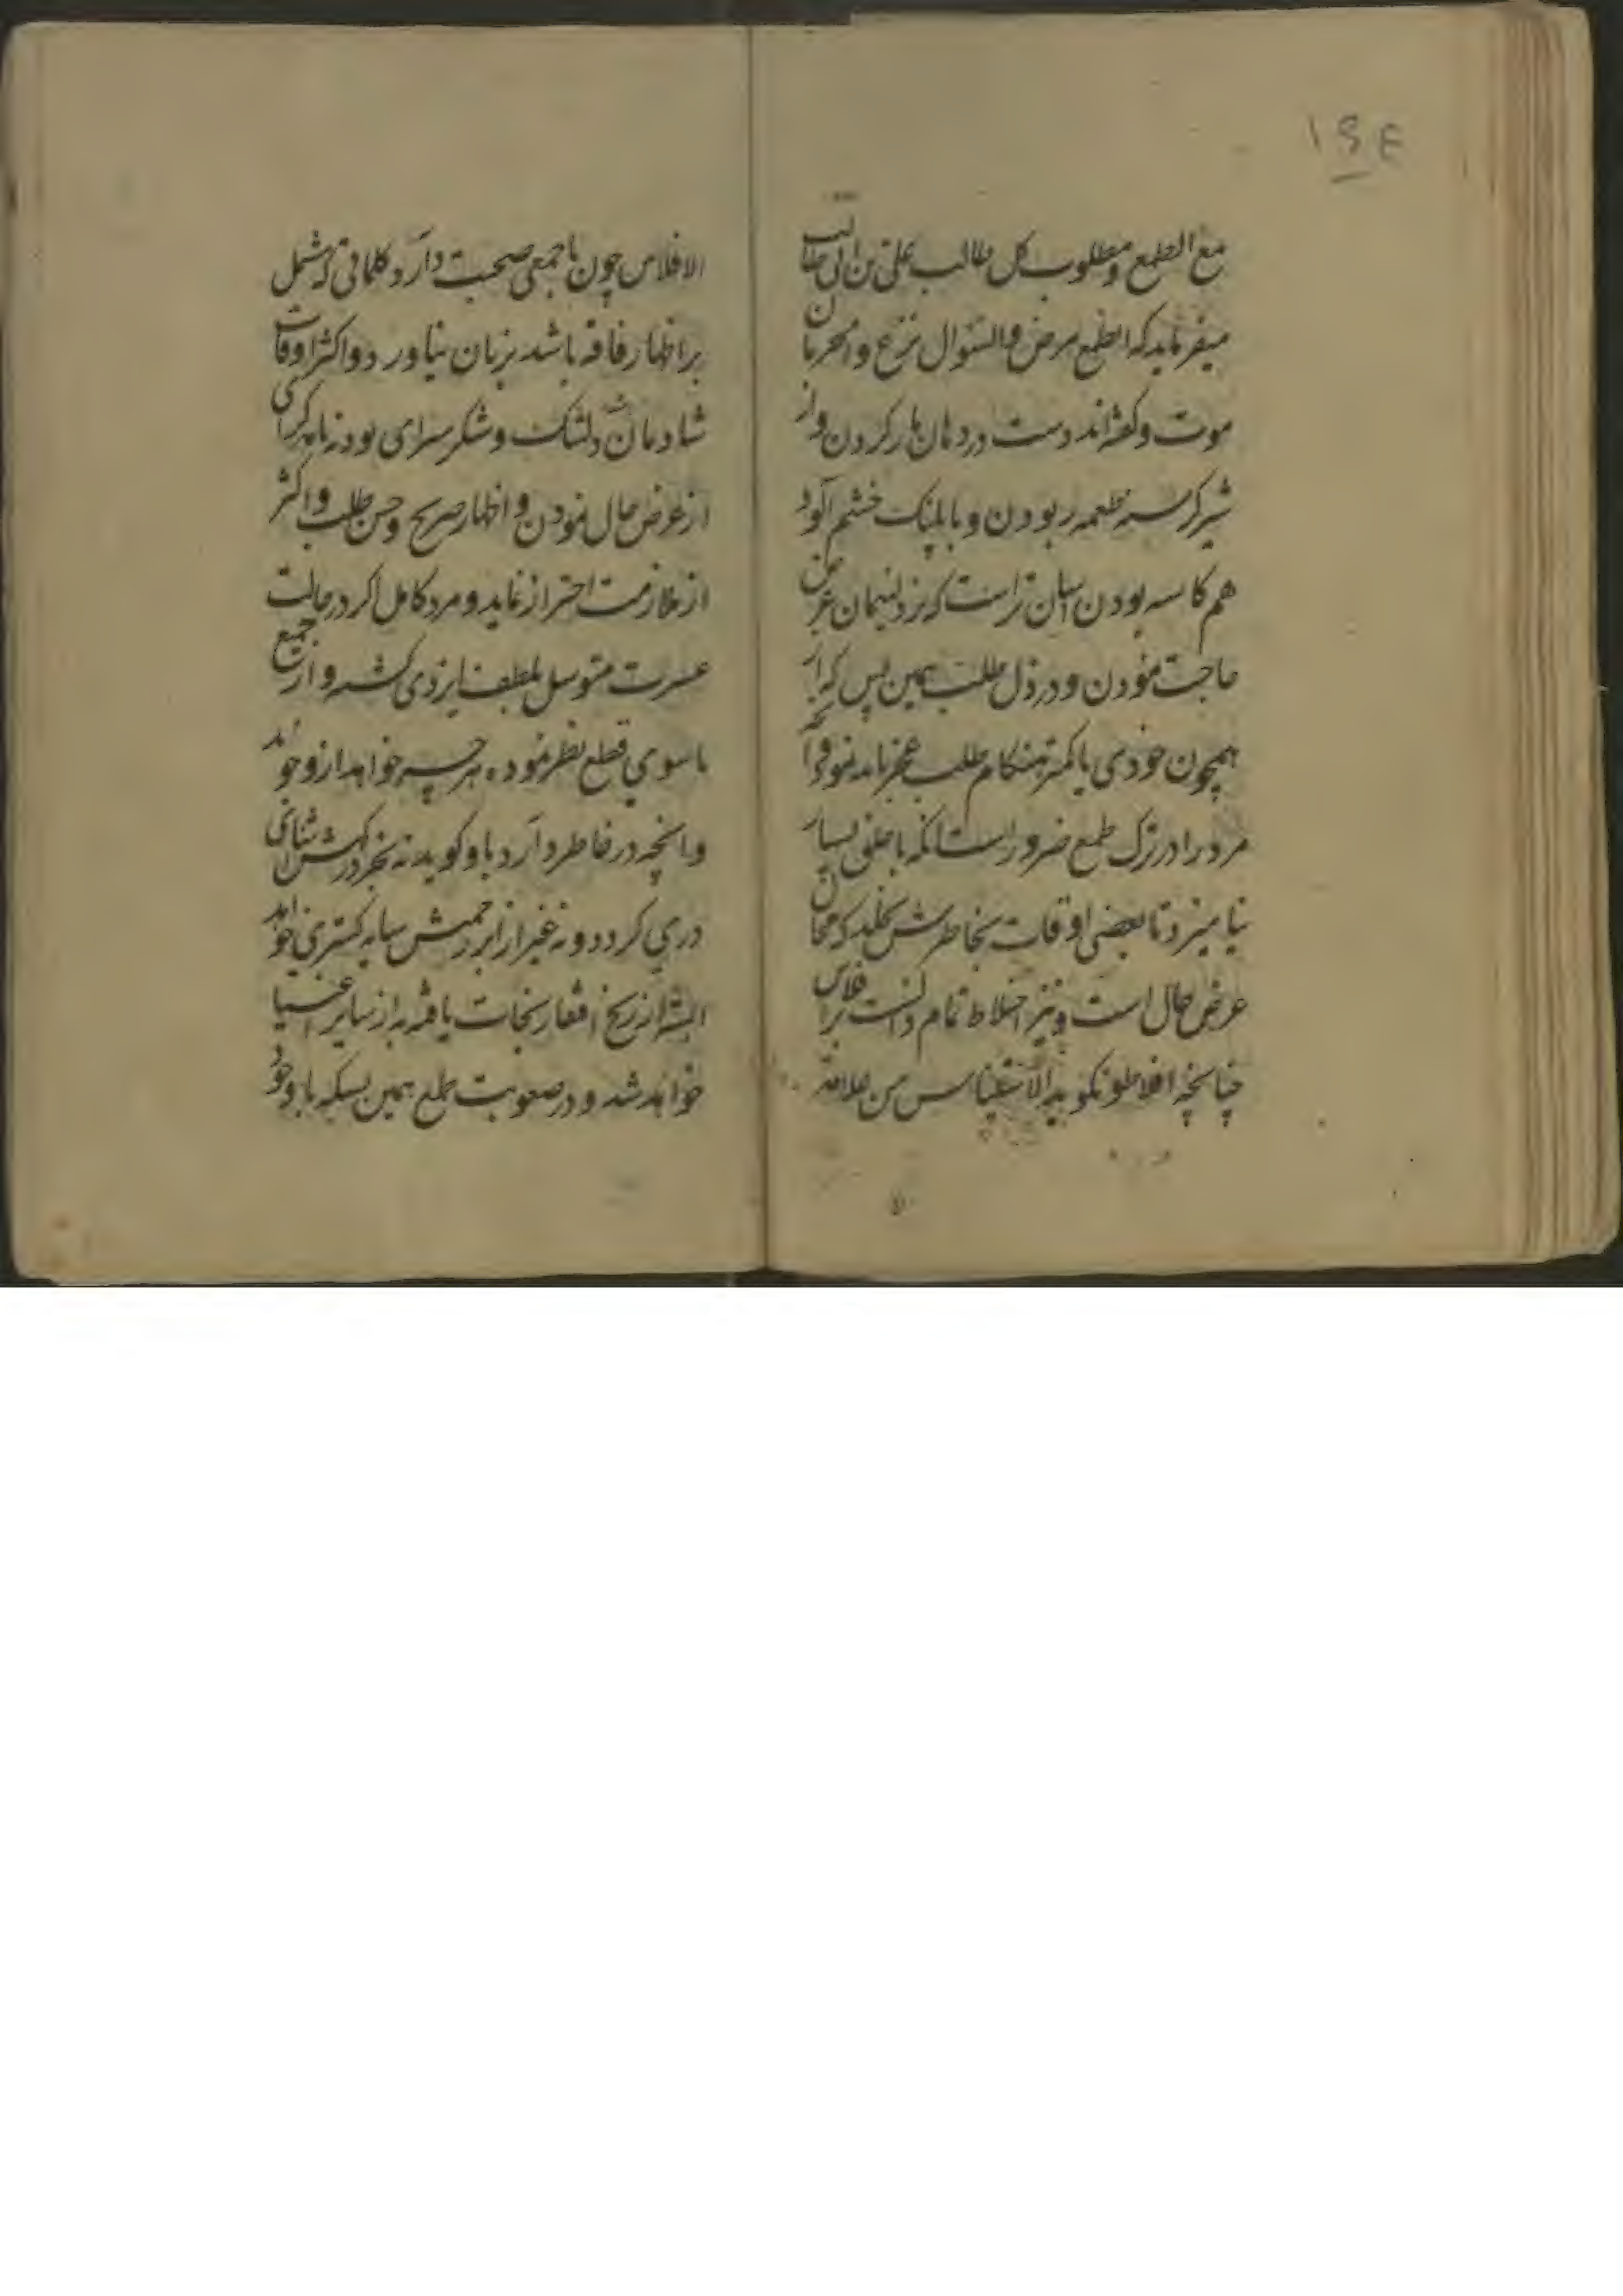 ۱۹۴
مع الطمع و مطلوب کل طالب علی بن ابی طالب
میفرماید که الطمع مرض والسؤال نزع والحرمان
موت و گفته‌اند دست در دهان مار کردن و از
شیر گرسنه طعمه ربودن و با پلنگ خشم آلود
هم کاسه بودن آسان تر است که نزد لئیمان عرض
حاجت نمودن و در ذل طلب همین بس که از
همچون خودی یا کمتر هنگام طلب عجز باید نمود و آنچه
مرد را در ترک طمع ضرور است آنکه با خلق بسیار
نیامیزد تا بعضی اوقات بخاطرش نخلد که محل
عرض حال است و نیز اختلاط تمام دانست بر افلاس
چنانچه افلاطون گوید الاستیناس من علامة
الافلاس چون با جمعی صحبت دارد کلماتی که مشتمل
بر اظهار فاقه باشد بزبان نیاورد و اکثر اوقات
شادمان و شکر سرای بوده
از عرض حال نمودن و اظهار صریح و حسن طلب و اکثر
از ملازمت احتراز نماید و مرد کامل اگر در حالت
عسرت متوسل بلطف ایزدی گشته و از جمیع
ماسوی قطع نظر نموده هر چه خواهد ازو جوید
و آنچه در خاطر دارد باو گوید نه بجز درگهش آشنای
دری گردد و نه غیر از ابر رحمتش سایه گستری خواهد
البته از رنج افتقار نجات یافته به از سایر اغنیا
خواهد شد و در صعوبت طمع همین بسکه با وجود